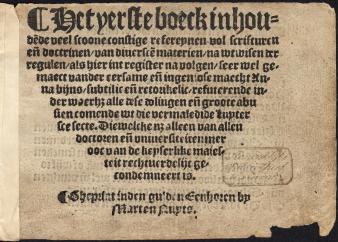 Het yerste boeck inhou-
dēde veel scoone constige refereynen vol scriftuerē
eñ doctrinen / van diverschē materien / na wtwisen der
regulen / als hier int register na volgen / seer wel ge-
maect vander eersame eñ ingeniose maecht An-
na bijns / subtilic eñ retorijkelic / refuterende in-
der waerheyt alle dese dolingen eñ groote abu
sien comende wt die vermaledide Luyter
sce secte. Die welcke nz alleen van allen
doctoren eñ universiteiten mer
ooc van de keyserlike maies-
teit rechtverdelijc ge-
condemneert is.
Gheprint inden gulden Eenhoren by
Marten Nuyts.